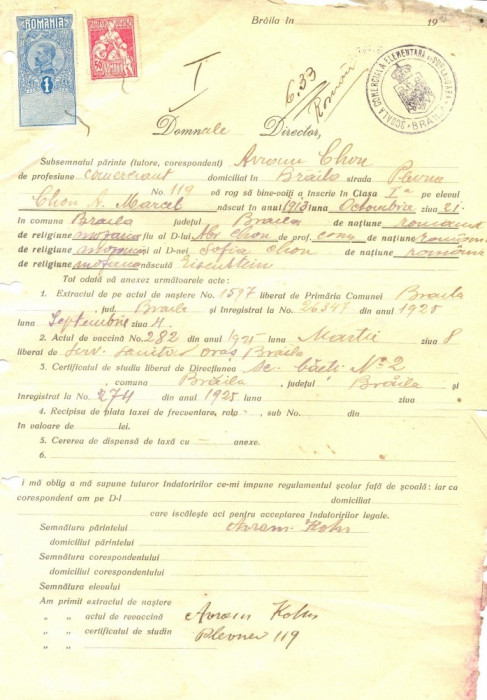 Brăila în 19
ROMANIA
1
50
ȘCOALA COMERCIALĂ ELEMENTARĂ
BRĂILA
I
6.33
Domnule Director,
Subsemnatul părinte (tutore, corespondent) Avram Chon
de profesiune comerciant domiciliat în Brăila strada Plevna
No. 119 vă rog să bine-voiți a înscrie în Clasa I-a pe elevul
Chon A. Marcel născut în anul 1913 luna Octombrie ziua 21
în comuna Braila județul Braila de națiune romana
de religiune mozaic fiu al D-lui Abr. Chon de prof. com. de națiune română
de religiune mozaic și al D-nei Sofia Chon de națiune română
de religiune mozaic născută Eisenstein
Tot odată vă anexez următoarele acte:
1. Extractul de pe actul de naștere No. 1597 liberat de Primăria Comunei Braila
jud. Braila și înregistrat la No. 26347 din anul 1925
luna Septembrie ziua 4.
2. Actul de vaccină No 282 din anul 1925 luna Martie ziua 8
liberat de Serv. sanitar oraș Braila
3. Certificatul de studiu liberat de Direcțiunea sc. băeți No 2
, comuna Brăila , județul Brăila și
înregistrat la No. 274 din anul 1925 luna ziua
4. Recipisa de plata taxei de frecventare, rata sub No. din
în valoare de lei.
5. Cererea de dispensă de taxă cu anexe.
6.
i mă oblig a mă supune tuturor îndatoririlor ce-mi impune regulamentul școlar față de școală: iar ca
corespondent am pe D-l domiciliat
care iscălește aci pentru acceptarea îndatoririlor legale.
Semnătura părintelui Avram Kohn
domiciliul părintelui
Semnătura corespondentului
domiciliul corespondentului
Semnătura elevului
Am primit extractul de naștere
„ „ actul de revaccină Avram Kohn
„ „ certificatul de studiu Plevnei 119